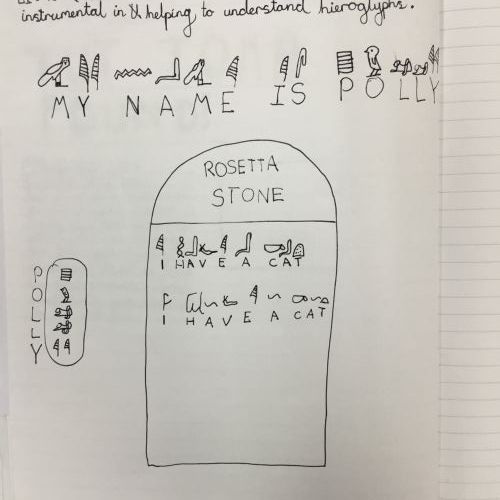 instrumental in helping to understand hieroglyphs.
MY NAME IS POLLY
ROSETTA
STONE
I HAVE A CAT
I HAVE A CAT
P
O
L
L
Y